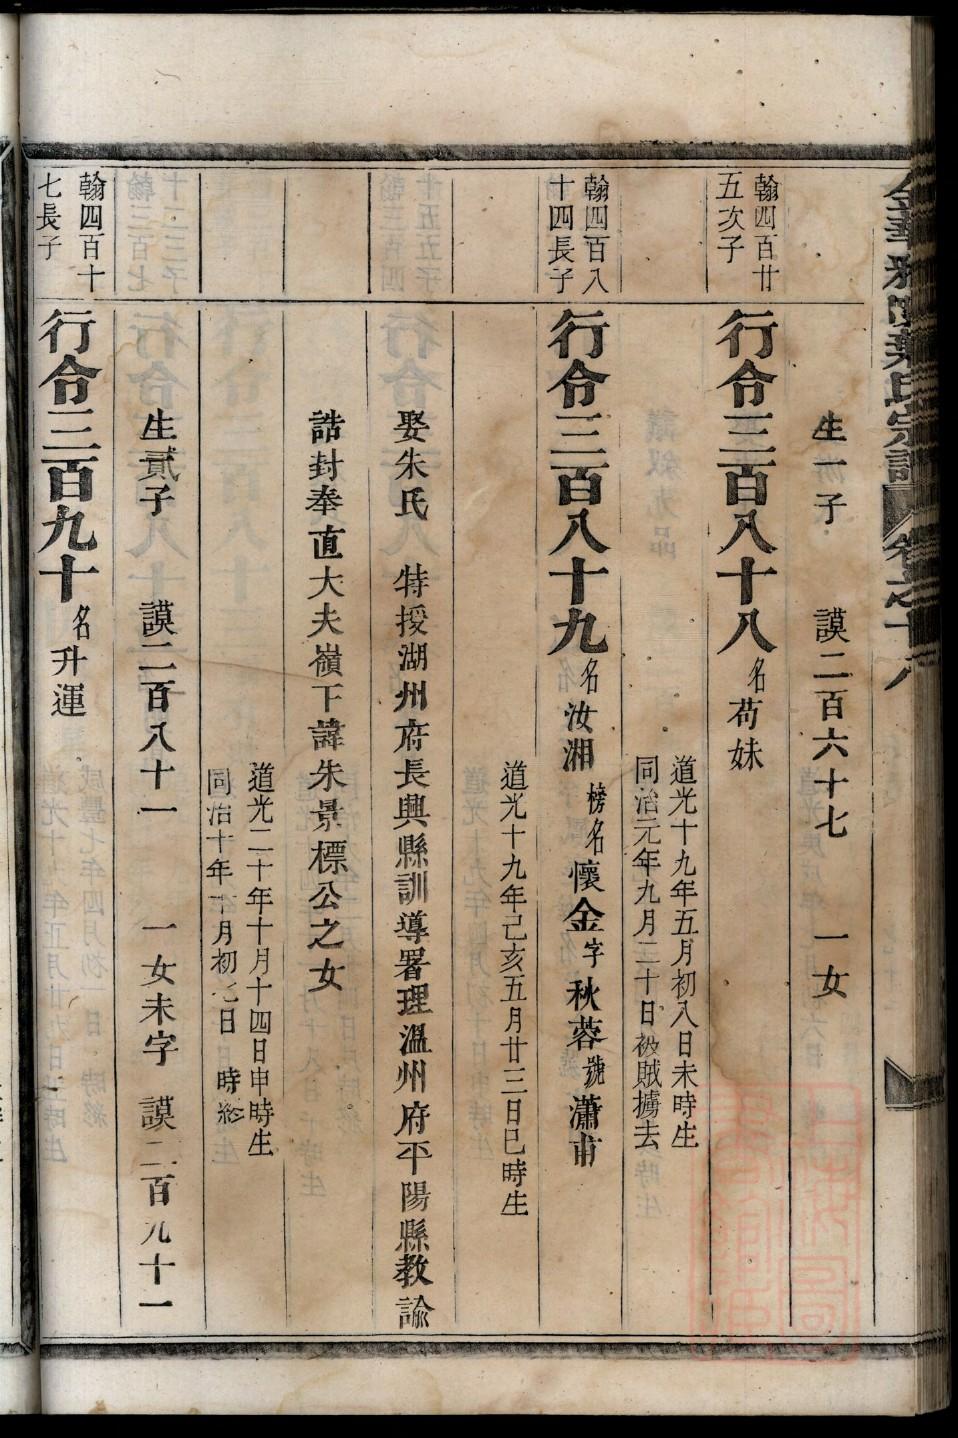 生一子 謨二百六十七 一女
翰四百廿
五次子
行令三百八十八名苟妹
道光十九年五月初八日未時生
同治元年九月二十日被賊擄去
翰四百八
十四長子
行令三百八十九名汝湘榜名懷金字秋蓉號瀟甫
道光十九年己亥五月廿三日巳時生
娶朱氏 特授湖州府長興縣訓導署理溫州府平陽縣教諭
誥封奉直大夫嶺下諱朱景標公之女
道光二十年十月十四日申時生
同治十年十月初 日 時終
生貳子 謨二百八十一 一女未字 謨二百九十一
翰四百十
七長子
行令三百九十名升運